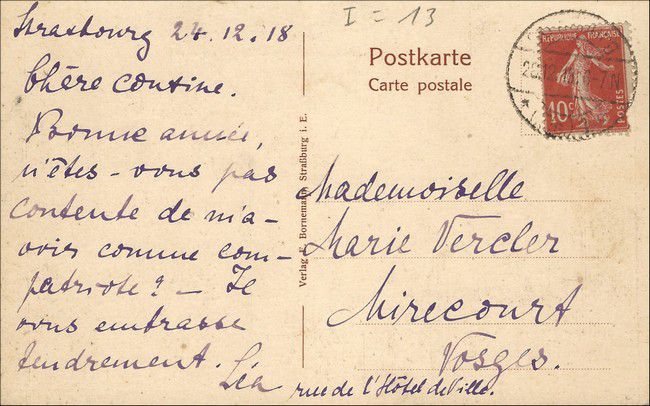 I = 13
Strasbourg 24.12.18
Chère cousine.
Bonne année,
n'êtes-vous pas
contente de m'a-
voir comme com-
patriote? — Je
vous embrasse
tendrement.
Léa
Postkarte
Carte postale
RÉPUBLIQUE FRANÇAISE
10c
POSTES
Verlag E. Bornemann, Straßburg i. E.
Mademoiselle
Marie Vercler
Mirecourt
Vosges.
rue de l'Hôtel de Ville.